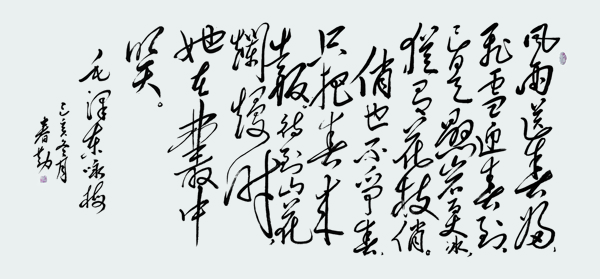 风雨送春归,
飞雪迎春到,
已是悬岩百丈冰,
犹有花枝俏。
俏也不争春,
只把春来
报。待到山花
烂熳时,
她在丛中
笑。
毛泽东咏梅
己亥冬月